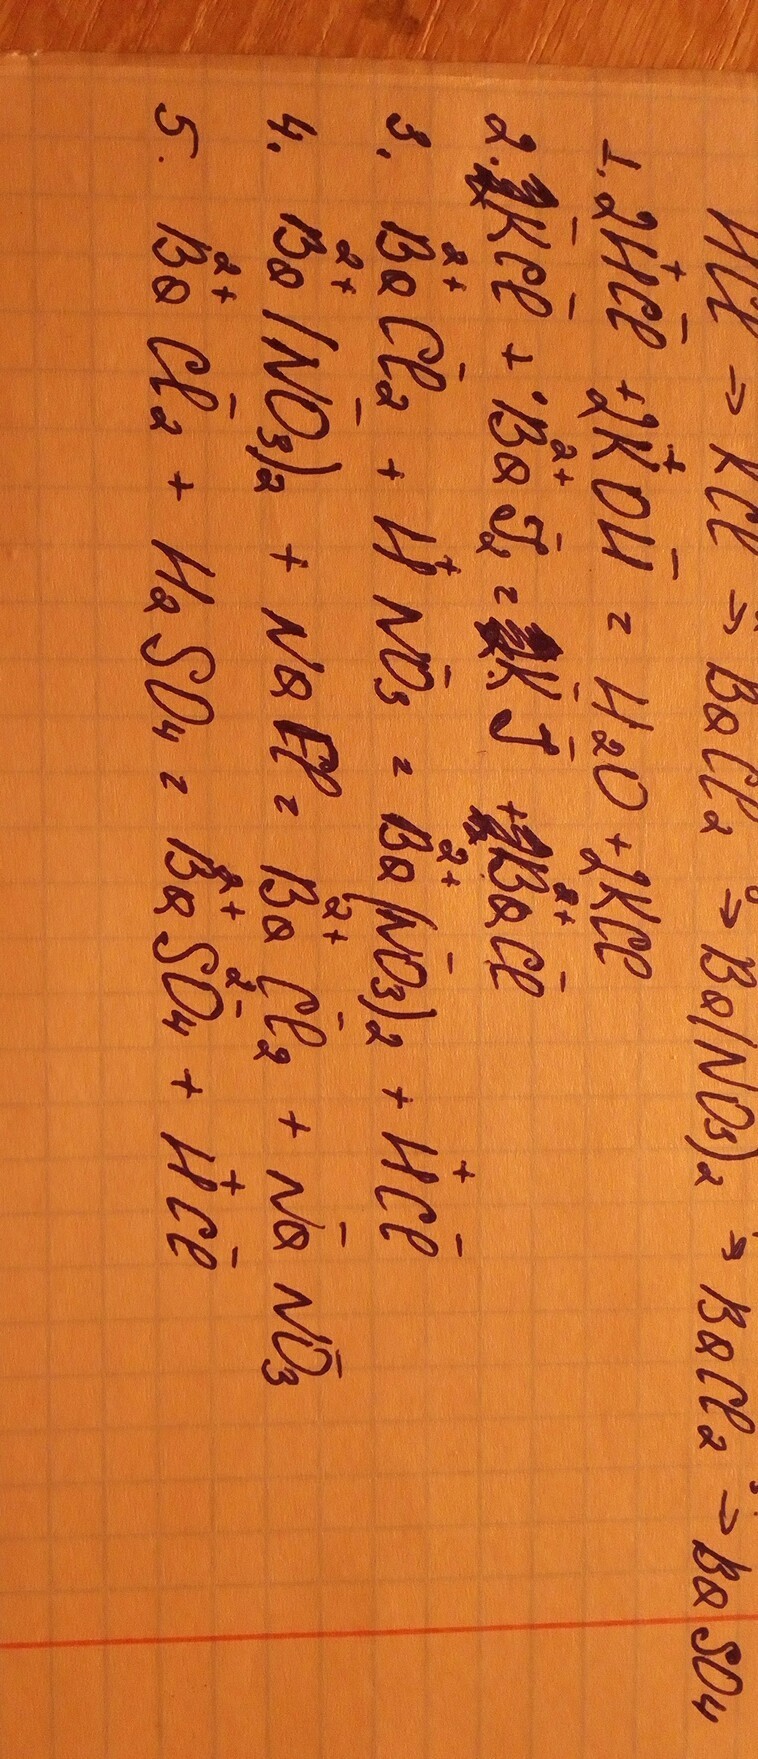 HCl → KCl → BaCl2 → Ba(NO3)2 → BaCl2 → BaSO4
1. 2H⁺Cl⁻ + 2K⁺OH⁻ = H2O + 2KCl
2. K⁻Cl⁻ + Ba²⁺J⁻2 = K⁻J⁻ + Ba²⁺Cl⁻
3. Ba²⁺Cl⁻2 + H⁺NO⁻3 = Ba²⁺(NO⁻3)2 + H⁺Cl⁻
4. Ba²⁺(NO⁻3)2 + NaCl = Ba²⁺Cl⁻2 + Na⁻NO⁻3
5. Ba²⁺Cl⁻2 + H2SO4 = Ba²⁺SO²⁻4 + H⁺Cl⁻